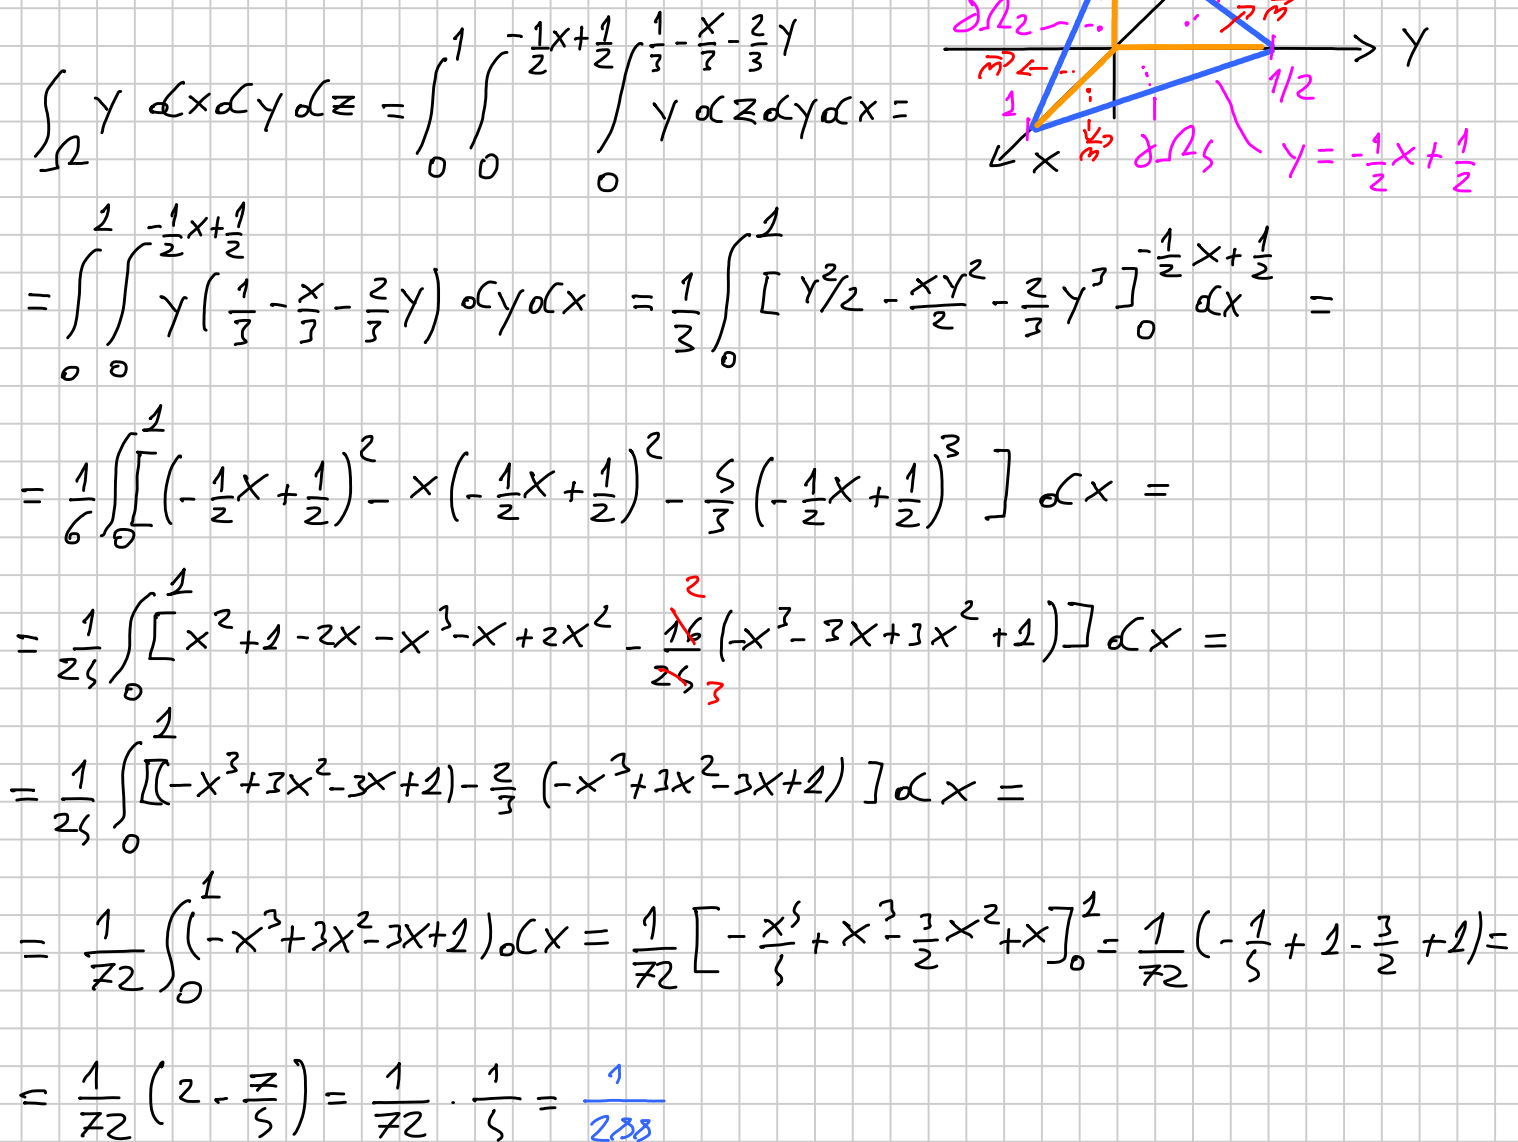 ∂Ω₂ m⃗
∫_Ω y dxdydz = ∫_0^1 ∫_0^{-1/2 x + 1/2} ∫_0^{1/3 - x/3 - 2/3 y} y dzdydx =
Y
m⃗
1 1/2
x m⃗ ∂Ω₄ y = -1/2 x + 1/2
= ∫_0^1 ∫_0^{-1/2 x + 1/2} y (1/3 - x/3 - 2/3 y) dydx = 1/3 ∫_0^1 [y²/2 - xy²/2 - 2/3 y³]_0^{-1/2 x + 1/2} dx =
= 1/6 ∫_0^1 [(-1/2 x + 1/2)² - x(-1/2 x + 1/2)² - 4/3 (-1/2 x + 1/2)³] dx =
= 1/24 ∫_0^1 [x² + 1 - 2x - x³ - x + 2x² - 16/24 (-x³ - 3x + 3x² + 1)] dx =
2 3
= 1/24 ∫_0^1 [(-x³ + 3x² - 3x + 1) - 2/3 (-x³ + 3x² - 3x + 1)] dx =
= 1/72 ∫_0^1 (-x³ + 3x² - 3x + 1) dx = 1/72 [-x⁴/4 + x³ - 3/2 x² + x]_0^1 = 1/72 (-1/4 + 1 - 3/2 + 1) =
= 1/72 (2 - 7/4) = 1/72 · 1/4 = 1/288